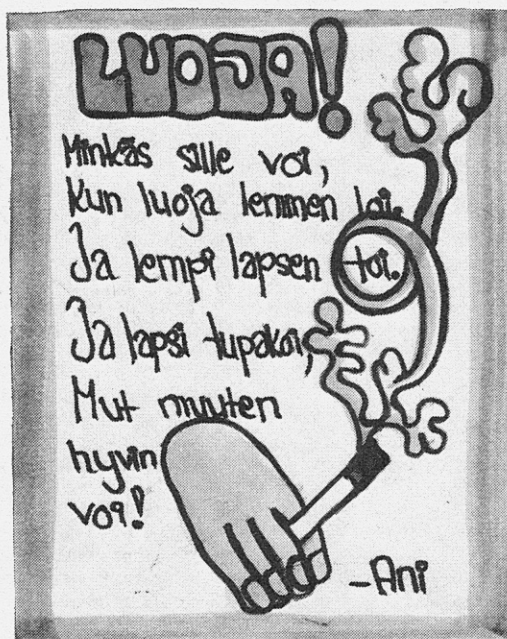 LUOJA!
Minkäs sille voi,
Kun luoja lemmen loi.
Ja lempi lapsen toi.
Ja lapsi tupakoi,
Mut muuten
hyvin
voi!
-Ani